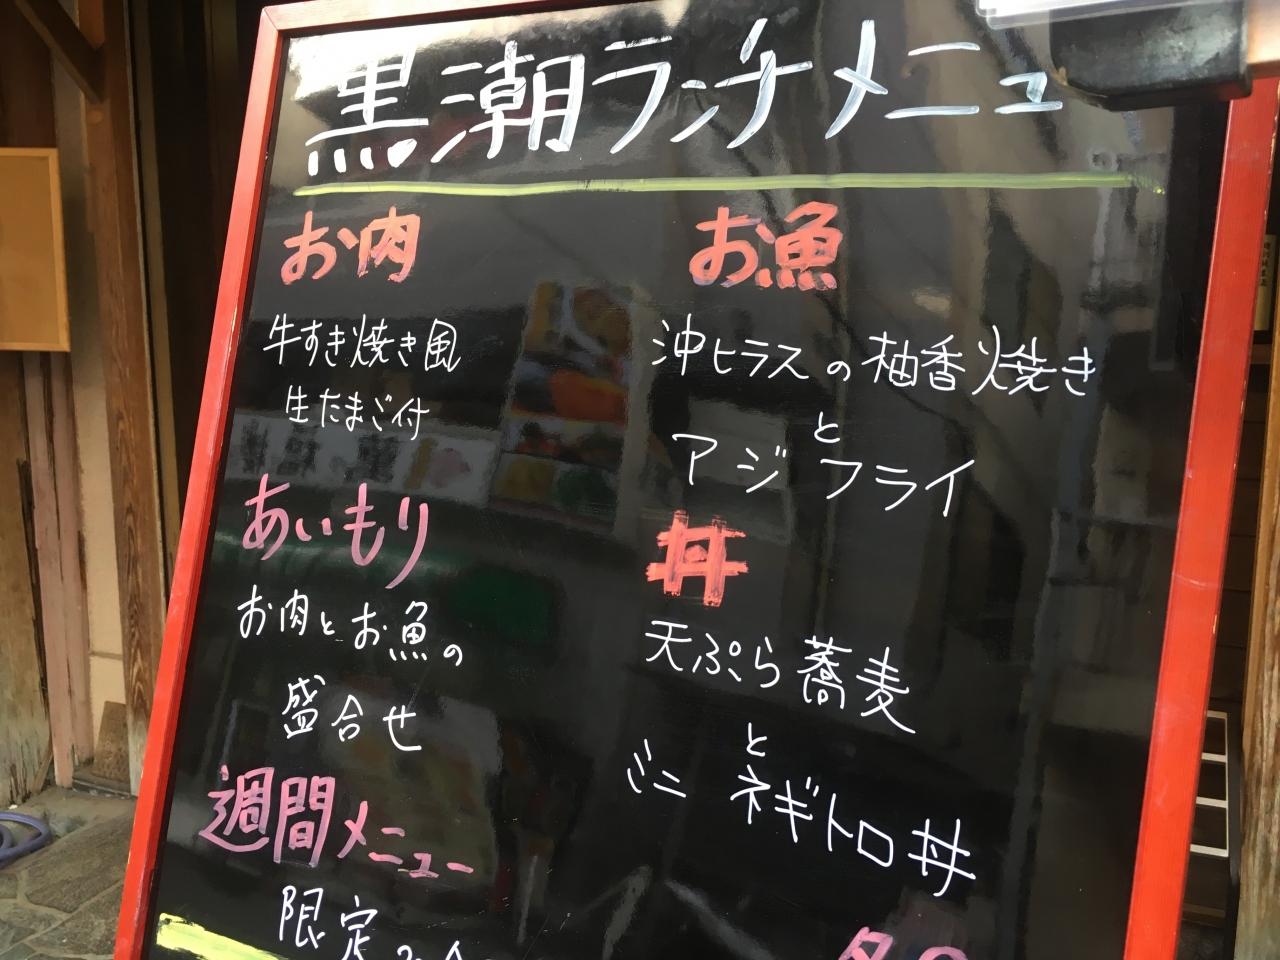 黒潮ランチメニュー
お肉
牛すき焼き風
生たまご付
あいもり
お肉とお魚の
盛合せ
週間メニュー
限定
お魚
沖ヒラスの柚香焼き
と
アジフライ
丼
天ぷら蕎麦
と
ミニ ネギトロ丼